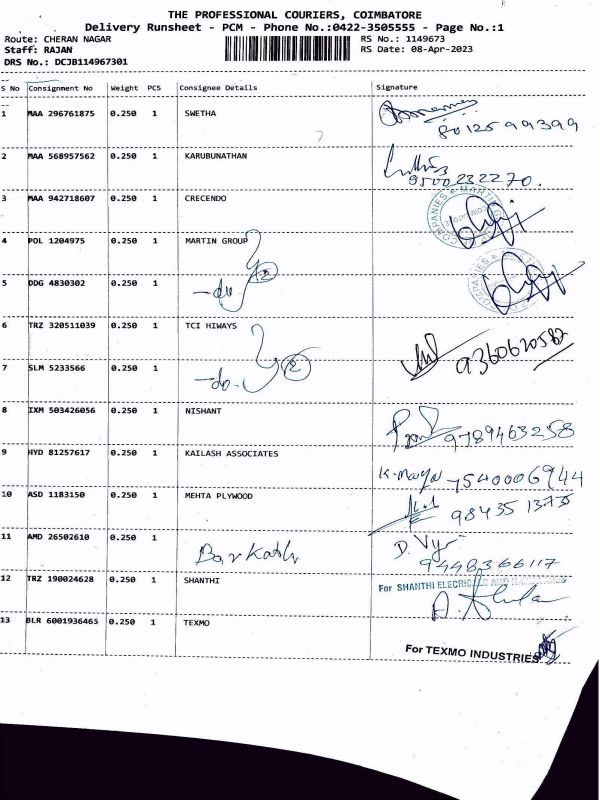 THE PROFESSIONAL COURIERS, COIMBATORE
Delivery Runsheet - PCM - Phone No.:0422-3505555 - Page No.:1
Route: CHERAN NAGAR RS No.: 1149673
Staff: RAJAN RS Date: 08-Apr-2023
DRS No.: DCJB114967301
S No Consignment No Weight PCS Consignee Details Signature
1 MAA 296761875 0.250 1 SWETHA
8012599399
2 MAA 568957562 0.250 1 KARUBUNATHAN
9500232270.
3 MAA 942718607 0.250 1 CRECENDO
COMPANIES ★ MARTIN
4 POL 1204975 0.250 1 MARTIN GROUP
5 DDG 4830302 0.250 1 -do- 2
COMPANIES ★
6 TRZ 320511039 0.250 1 TCI HIWAYS
9360620582
7 SLM 5233566 0.250 1 -do- 2
8 IXM 503426056 0.250 1 NISHANT 9789463258
9 HYD 81257617 0.250 1 KAILASH ASSOCIATES
7540006944
10 ASD 1183150 0.250 1 MEHTA PLYWOOD
98435 13775
11 AMD 26502610 0.250 1
9448366117
12 TRZ 190024628 0.250 1 SHANTHI For SHANTHI
13 BLR 6001936465 0.250 1 TEXMO
For TEXMO INDUSTRIES